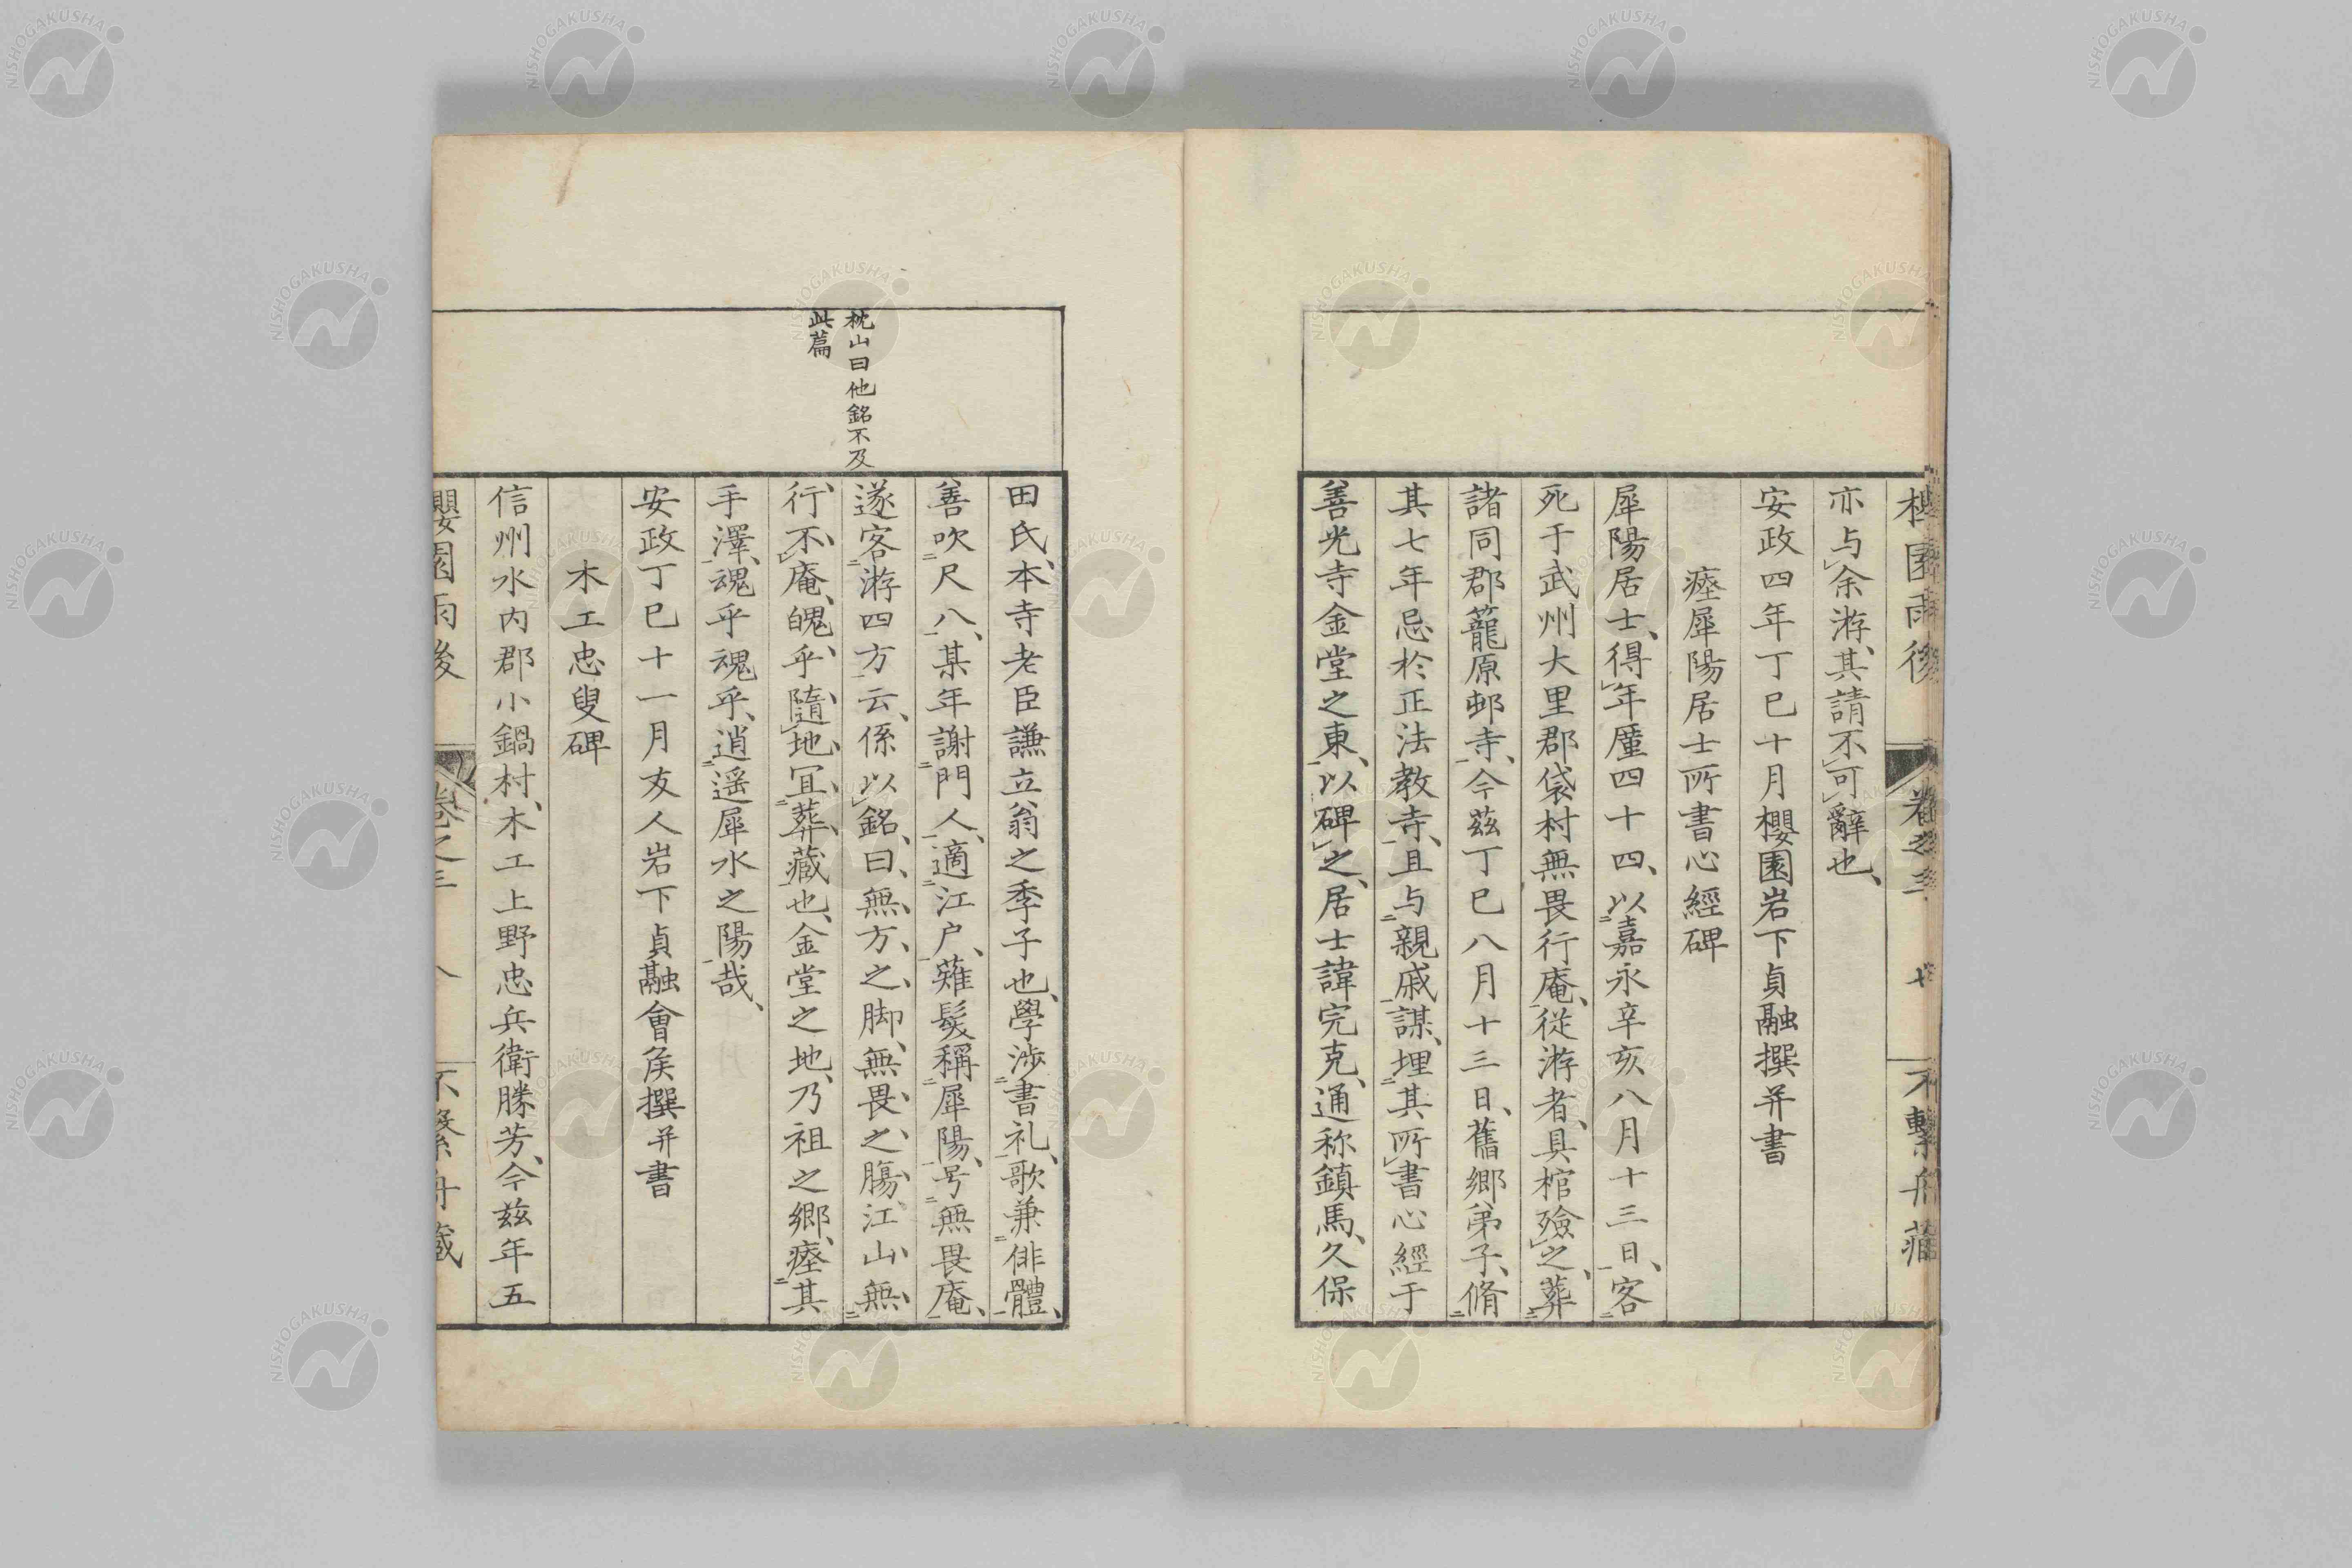 亦与余游、其請不可辭也、
安政四年丁巳十月櫻園岩下貞融撰并書
瘞犀陽居士所書心經碑
犀陽居士、得年廑四十四、以嘉永辛亥八月十三日、客
死于武州大里郡袋村無畏行庵、從游者、具棺殮之、葬
諸同郡籠原邨寺、今茲丁巳八月十三日、舊鄉弟子、脩
其七年忌於正法教寺、且与親戚謀、埋其所書心經于
善光寺金堂之東、以碑之、居士諱完克、通称鎮馬、久保
田氏、本寺老臣謙立翁之季子也、學渉書礼、歌兼俳體、
善吹尺八、某年謝門人、適江戸、薙髪稱犀陽、号無畏庵、
遂客游四方云、係以銘、曰、無方之脚、無畏之膓、江山無
行不庵、魄乎、隨地冝葬、藏也、金堂之地、乃祖之鄉、瘞其
手澤、魂乎魂乎、逍遥犀水之陽哉、
安政丁巳十一月友人岩下貞融會矦撰并書
木工忠叟碑
信州水内郡小鍋村、木工上野忠兵衛勝芳、今茲年五
枕山曰他銘不及
此篇
櫻園雨後
卷之三
七
不繫舟藏
櫻園雨後
卷之三
八
不繫舟藏
NISHOGAKUSHA